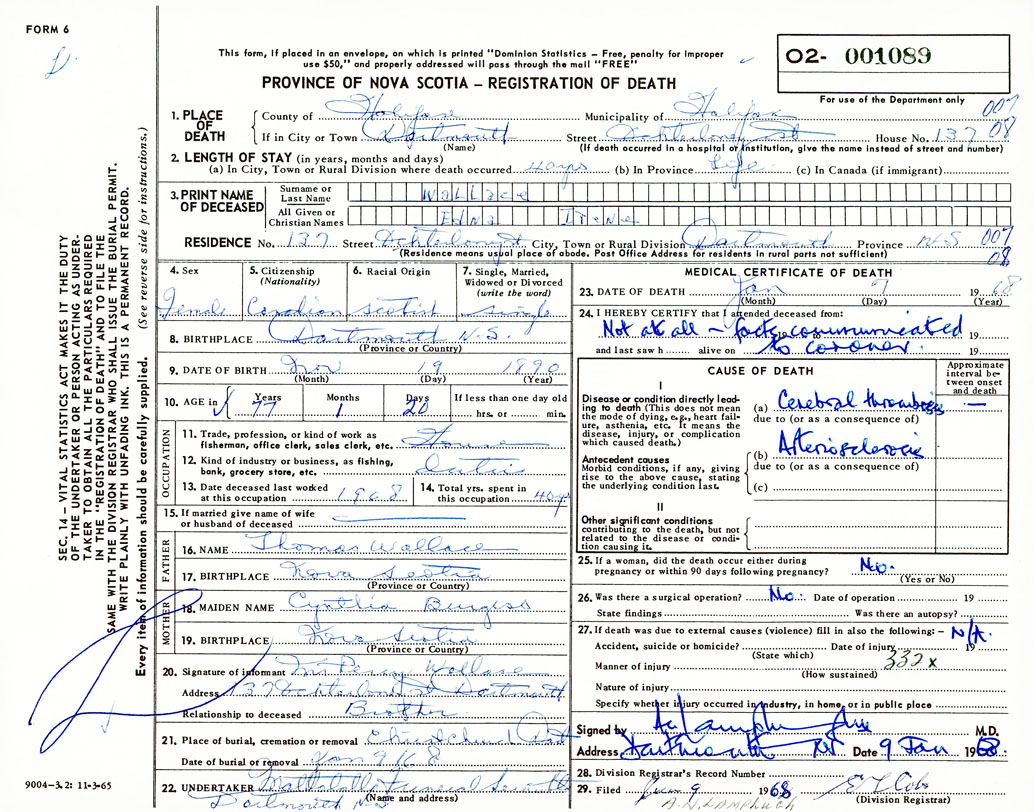 FORM 6
This form, if placed in an envelope, on which is printed "Dominion Statistics – Free, penalty for improper
use $50," and properly addressed will pass through the mail "FREE"
O2- 001089
PROVINCE OF NOVA SCOTIA – REGISTRATION OF DEATH
For use of the Department only
1. PLACE OF DEATH
County of Halifax Municipality of Halifax 007
If in City or Town Dartmouth Street Ochterloney St House No. 137 08
(Name) (If death occurred in a hospital or institution, give the name instead of street and number)
2. LENGTH OF STAY (in years, months and days)
(a) In City, Town or Rural Division where death occurred (b) In Province Life (c) In Canada (if immigrant)
3. PRINT NAME OF DECEASED
Surname or Last Name Wallace
All Given or Christian Names Edna Irene
RESIDENCE No. 137 Street Ochterloney St City, Town or Rural Division Dartmouth Province N.S 007
(Residence means usual place of abode. Post Office Address for residents in rural parts not sufficient) 08
4. Sex
Female
5. Citizenship (Nationality)
Canadian
6. Racial Origin
Scotist
7. Single, Married, Widowed or Divorced (write the word)
Single
8. BIRTHPLACE Dartmouth N.S.
(Province or Country)
9. DATE OF BIRTH Nov 19 1890
(Month) (Day) (Year)
10. AGE in Years 77 Months 1 Days 20 If less than one day old hrs. or min.
OCCUPATION
11. Trade, profession, or kind of work as fisherman, office clerk, sales clerk, etc. House
12. Kind of industry or business, as fishing, bank, grocery store, etc. Duties
13. Date deceased last worked at this occupation 1968
14. Total yrs. spent in this occupation
15. If married give name of wife or husband of deceased
FATHER
16. NAME Thomas Wallace
17. BIRTHPLACE Nova Scotia
(Province or Country)
MOTHER
18. MAIDEN NAME Cynthia Burgess
19. BIRTHPLACE Nova Scotia
(Province or Country)
20. Signature of informant Wallace
Address 137 Ochterloney St Dartmouth
Relationship to deceased Brother
21. Place of burial, cremation or removal
Date of burial or removal Jan 9 68
22. UNDERTAKER Funeral
(Name and address)
Dartmouth N.S
MEDICAL CERTIFICATE OF DEATH
23. DATE OF DEATH Jan 7 1968
(Month) (Day) (Year)
24. I HEREBY CERTIFY that I attended deceased from:
Not at all – facts communicated 19
and last saw h alive on to coroner. 19
CAUSE OF DEATH
Approximate interval between onset and death
I
Disease or condition directly leading to death (This does not mean the mode of dying, e.g., heart failure, asthenia, etc. It means the disease, injury, or complication which caused death.)
(a) Cerebral thrombosis –
due to (or as a consequence of)
Antecedent causes
Morbid conditions, if any, giving rise to the above cause, stating the underlying condition last.
(b) Arteriosclerosis
due to (or as a consequence of)
(c)
II
Other significant conditions
contributing to the death, but not related to the disease or condition causing it.
25. If a woman, did the death occur either during pregnancy or within 90 days following pregnancy? No.
(Yes or No)
26. Was there a surgical operation? No. Date of operation 19
State findings Was there an autopsy?
27. If death was due to external causes (violence) fill in also the following: – N/A.
Accident, suicide or homicide? Date of injury 19
(State which)
332 x
Manner of injury
(How sustained)
Nature of injury
Specify whether injury occurred in industry, in home, or in public place
Signed by M.D.
Address Dartmouth NS Date 9 Jan 1968
28. Division Registrar's Record Number
29. Filed 9 1968
(Division Registrar)
A.D. LAMPHUGH
9004-3.2: 11-3-65
SEC. 14 – VITAL STATISTICS ACT MAKES IT THE DUTY
OF THE UNDERTAKER OR PERSON ACTING AS UNDER-
TAKER TO OBTAIN ALL THE PARTICULARS REQUIRED
IN THE "REGISTRATION OF DEATH" AND TO FILE THE
SAME WITH THE DIVISION REGISTRAR WHO SHALL ISSUE THE BURIAL PERMIT.
WRITE PLAINLY WITH UNFADING INK. THIS IS A PERMANENT RECORD.
Every item of information should be carefully supplied. (See reverse side for instructions.)